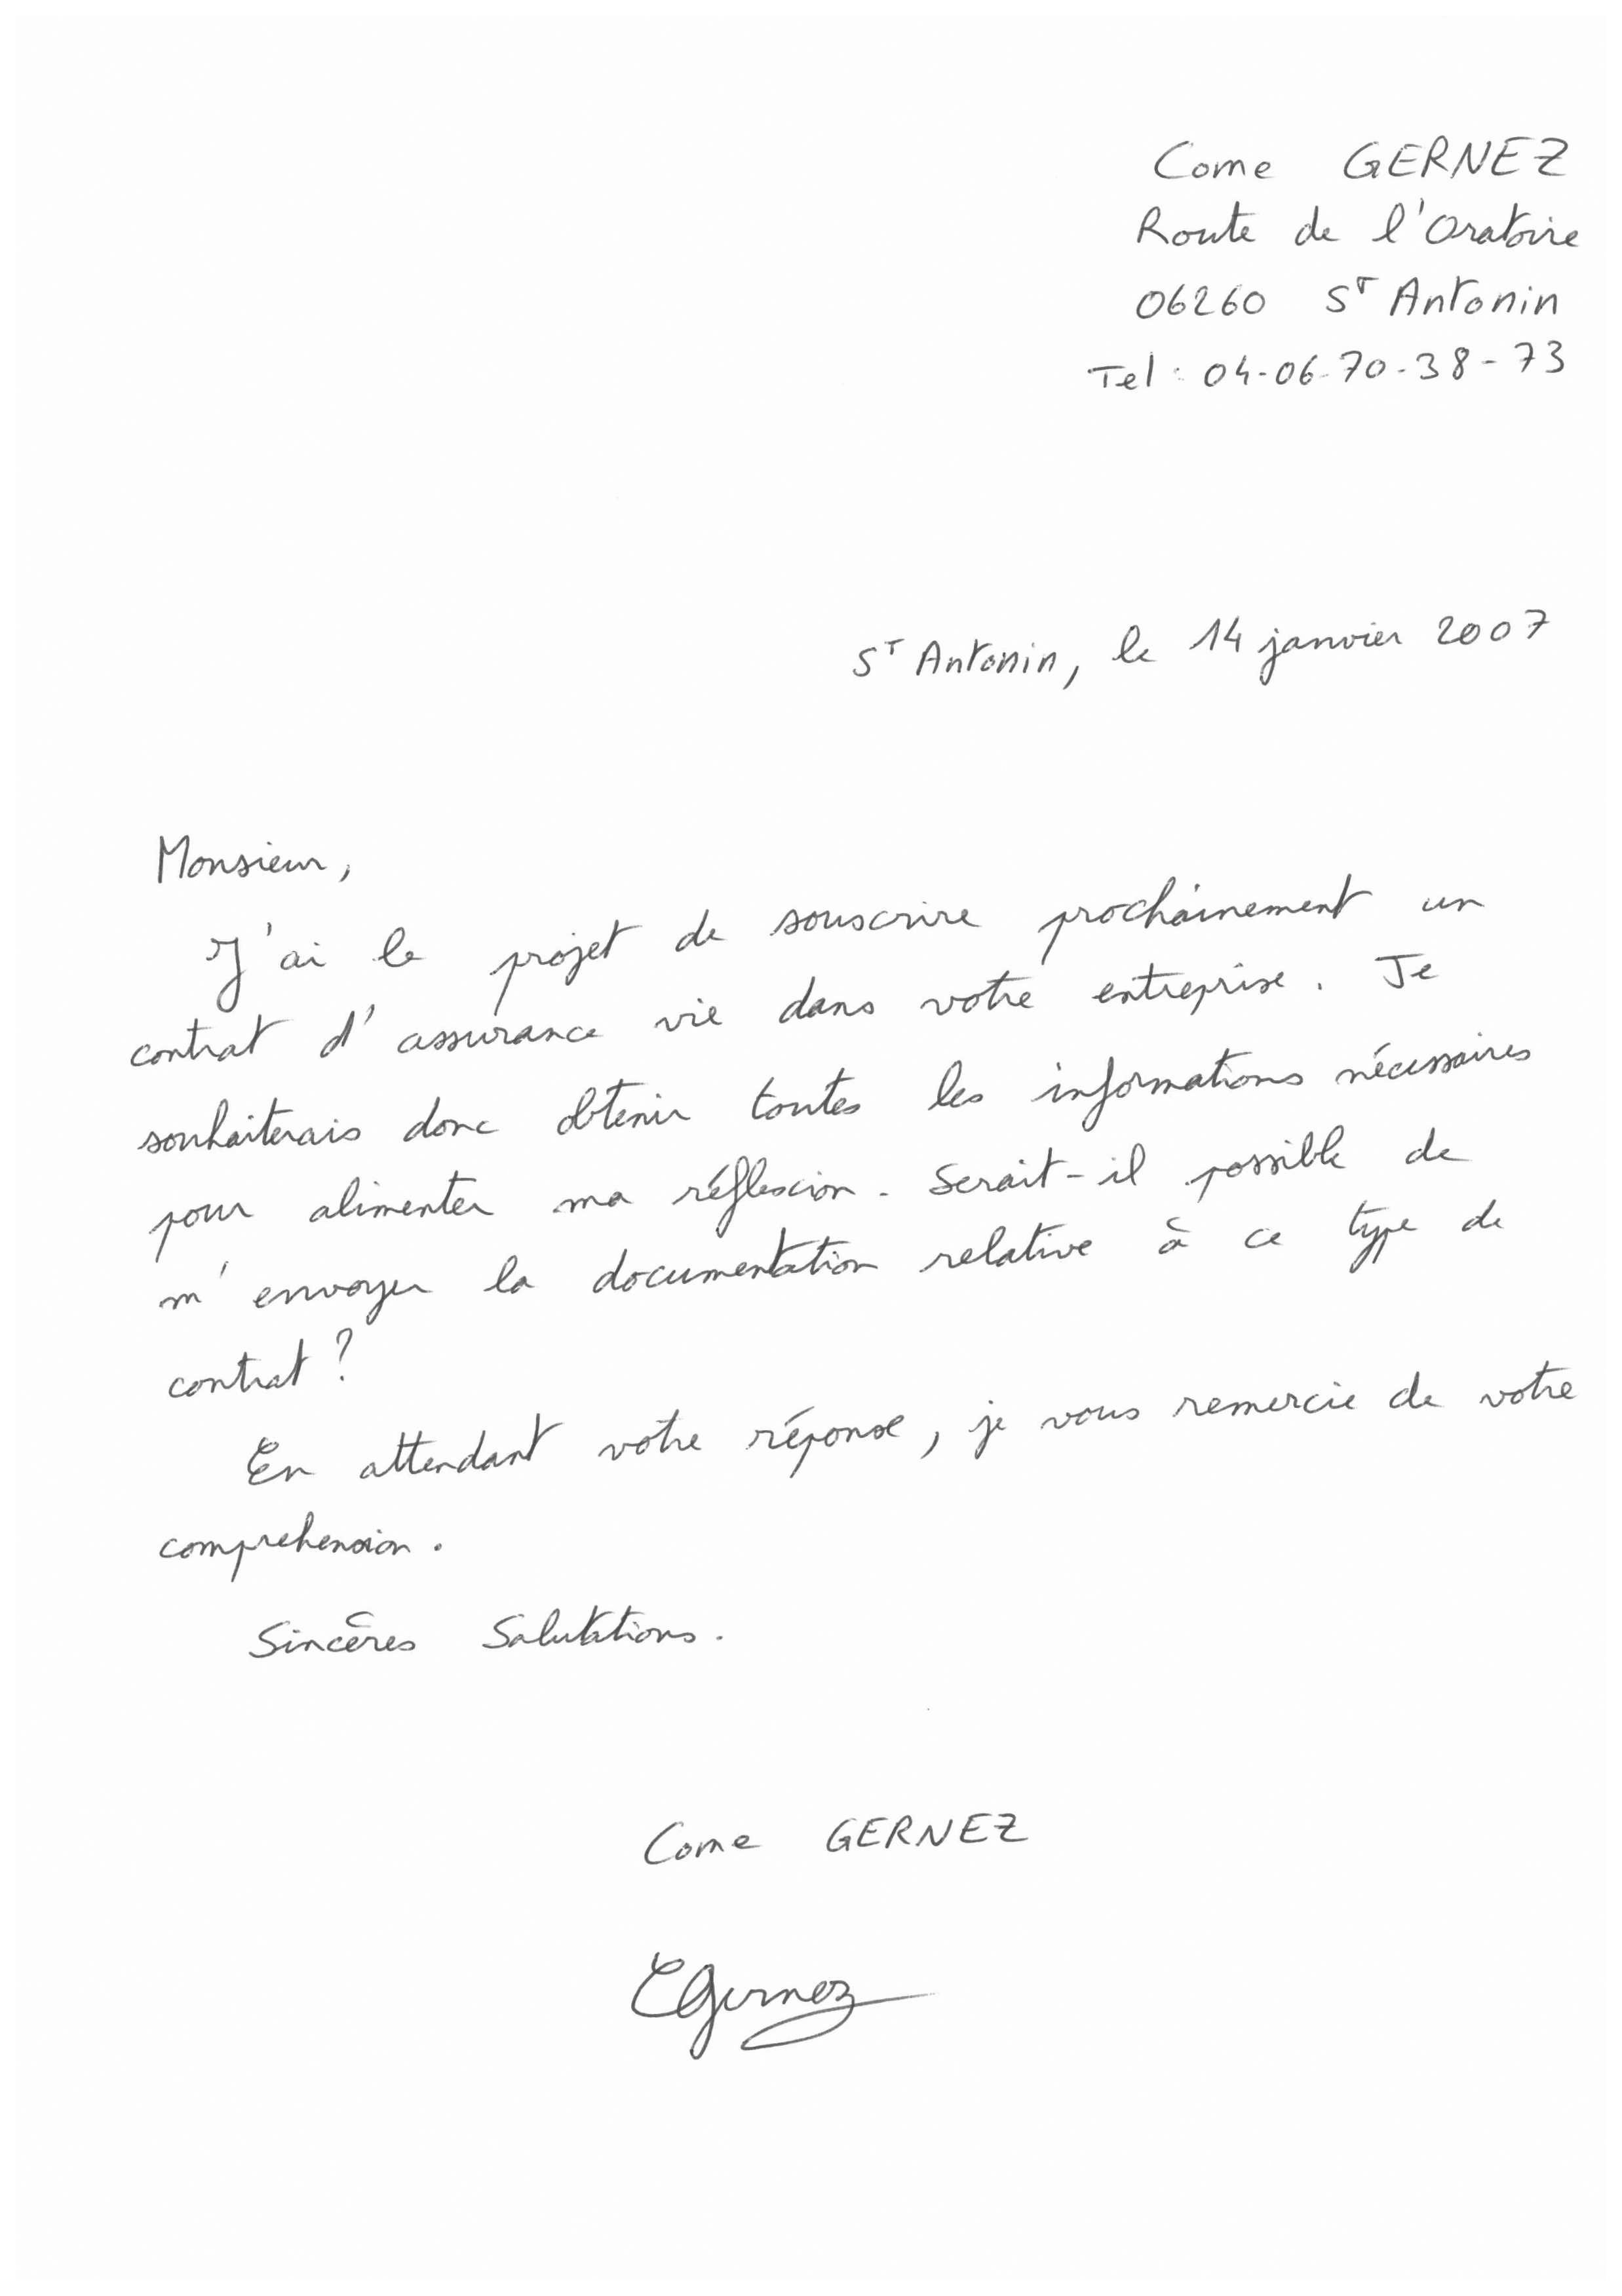 Come GERNEZ
Route de l'Oratoire
06260 St Antonin
Tel : 04-06-70-38-73
St Antonin, le 14 janvier 2007
Monsieur,
J'ai le projet de souscrire prochainement un
contrat d'assurance vie dans votre entreprise. Je
souhaiterais donc obtenir toutes les informations nécessaires
pour alimenter ma réflexion. Serait-il possible de
m'envoyer la documentation relative à ce type de
contrat ?
En attendant votre réponse, je vous remercie de votre
comprehension.
Sincères Salutations.
Come GERNEZ
CGernez